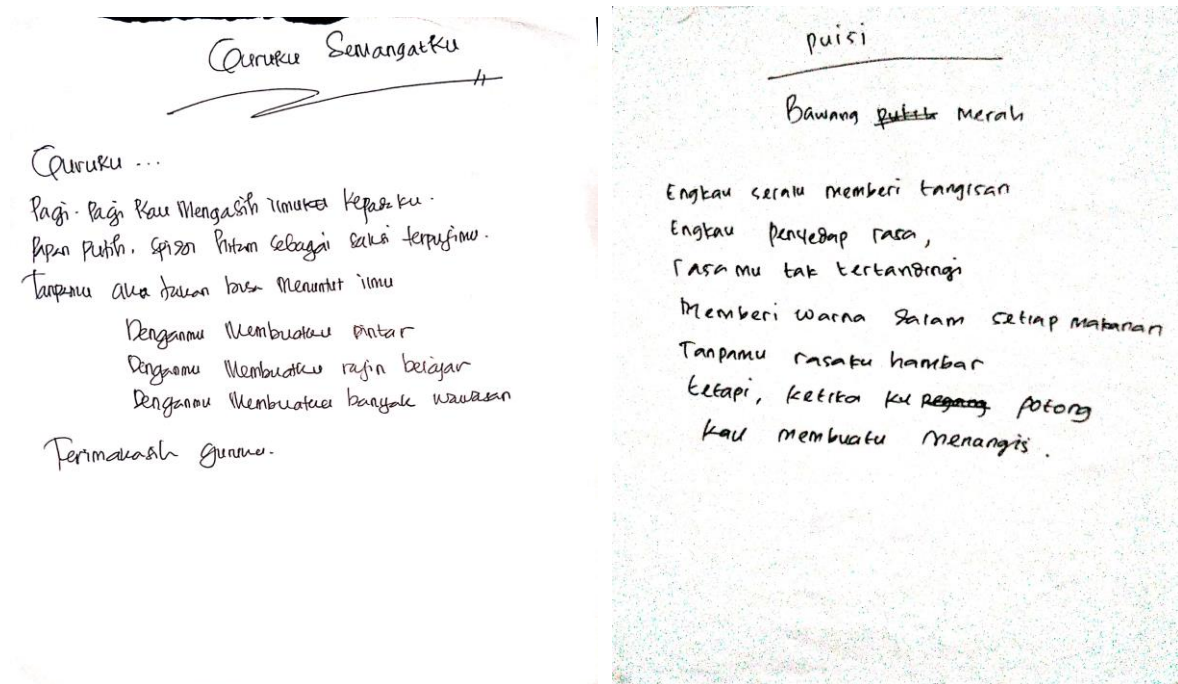 Guruku Semangatku
Guruku ...
Pagi-Pagi Kau Mengasih ilmu Kepadaku.
Papan Putih, Spidol hitam sebagai saksi terpujimu.
Tanpamu aku takkan bisa Menuntut ilmu
Denganmu Membuatku pintar
Denganmu Membuatku rajin belajar
Denganmu Membuatku banyak wawasan
Terimakasih guruku.
puisi
Bawang putih merah
Engkau selalu memberi tangisan
Engkau penyedap rasa,
rasamu tak tertandingi
Memberi warna dalam setiap makanan
Tanpamu rasaku hambar
tetapi, ketika ku pegang potong
kau membuatu menangis.